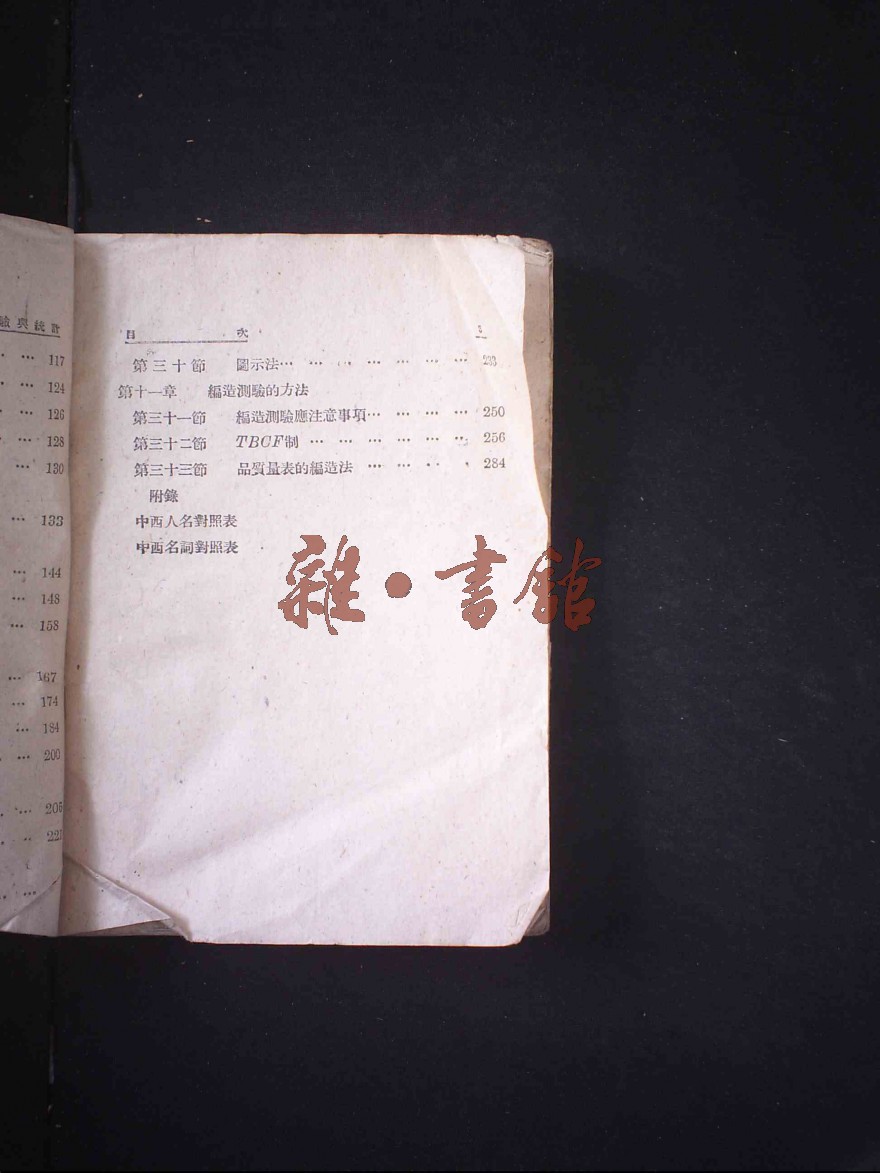 驗與統計
… 117
… 124
… 126
… 128
… 130
… 133
… 144
… 148
… 158
… 167
… 174
… 184
… 200
目 次
第三十節 圖示法… … … … … … … 233
第十一章 編造測驗的方法
第三十一節 編造測驗應注意事項… … … … 250
第三十二節 TBCF制 … … … … … … 256
第三十三節 品質量表的編造法 … … … … 284
附錄
中西人名對照表
中西名詞對照表
雜·書館